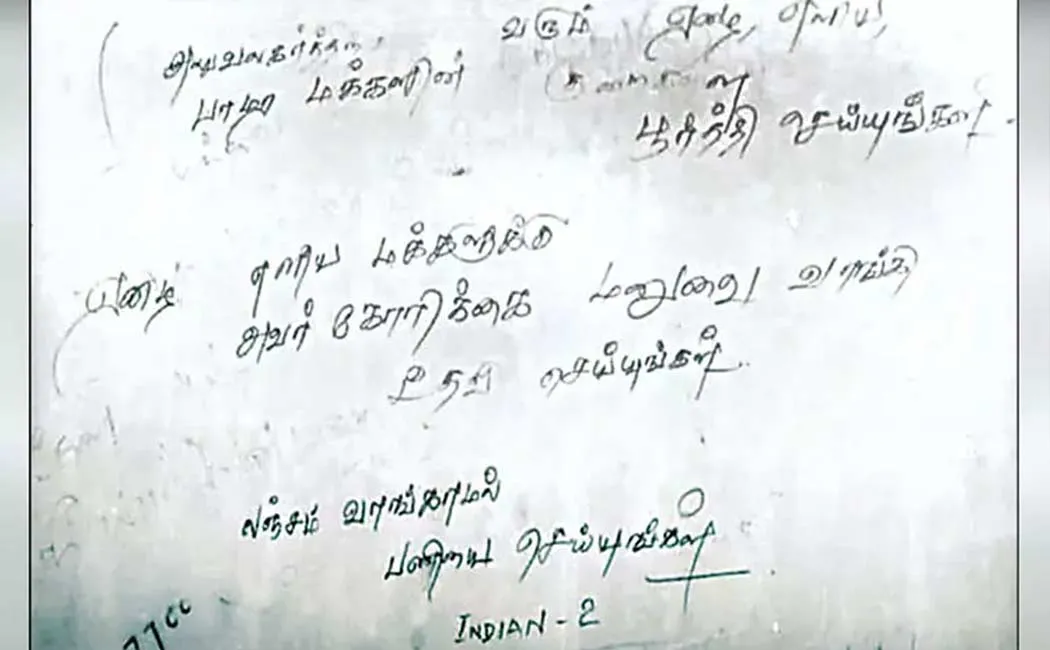 அலுவலகத்தில் வரும் ஏழை, எளிய,
பாழை மக்களின்
பூர்த்தி செய்யுங்கள்.
ஏழை எளிய மக்களுக்கு
அவர் கோரிக்கை மனுவை வாங்கி
உதவி செய்யுங்கள்.
லஞ்சம் வாங்காமல்
பணியை செய்யுங்கள்
INDIAN - 2